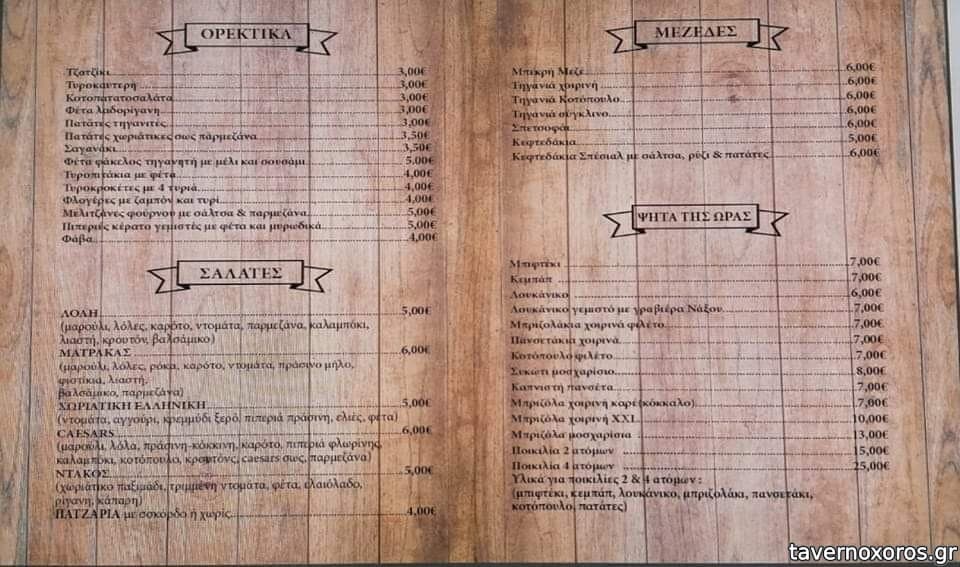 ΟΡΕΚΤΙΚΑ
Τζατζίκι 3,00€
Τυροκαυτερή 3,00€
Κοτοπατατοσαλάτα 3,00€
Φέτα λαδορίγανη 3,00€
Πατάτες τηγανιτές 3,00€
Πατάτες χωριάτικες σως παρμεζάνα 3,50€
Σαγανάκι 3,50€
Φέτα φάκελος τηγανητή με μέλι και σουσάμι 5,00€
Τυροπιτάκια με φέτα 4,00€
Τυροκροκέτες με 4 τυριά 4,00€
Φλογέρες με ζαμπόν και τυρί 4,00€
Μελιτζάνες φούρνου με σάλτσα & παρμεζάνα 5,00€
Πιπεριές κέρατο γεμιστές με φέτα και μυρωδικά 5,00€
Φάβα 4,00€
ΣΑΛΑΤΕΣ
ΛΟΛΗ 5,00€
(μαρούλι, λόλες, καρότο, ντομάτα, παρμεζάνα, καλαμπόκι,
λιαστή, κρουτόν, βαλσάμικο)
ΜΑΤΡΑΚΑΣ 6,00€
(μαρούλι, λόλες, ρόκα, καρότο, ντομάτα, πράσινο μήλο,
φιστίκια, λιαστή,
βαλσάμικο, παρμεζάνα)
ΧΩΡΙΑΤΙΚΗ ΕΛΛΗΝΙΚΗ 5,00€
(ντομάτα, αγγούρι, κρεμμύδι ξερό, πιπεριά πράσινη, ελιές, φέτα)
CAESARS 6,00€
(μαρούλι, λόλα, πράσινη-κόκκινη, καρότο, πιπεριά φλωρίνης,
καλαμπόκι, κοτόπουλο, κρουτόνς, caesars σως, παρμεζάνα)
ΝΤΑΚΟΣ 5,00€
(χωριάτικο παξιμάδι, τριμμένη ντομάτα, φέτα, ελαιόλαδο,
ρίγανη, κάπαρη)
ΠΑΤΖΑΡΙΑ με σσκόρδο ή χωρίς 4,00€
ΜΕΖΕΔΕΣ
Μπεκρή Μεζέ 6,00€
Τηγανιά χοιρινή 6,00€
Τηγανιά Κοτόπουλο 6,00€
Τηγανιά σύγκλινο 6,00€
Σπετσοφάι 6,00€
Κεφτεδάκια 5,00€
Κεφτεδάκια Σπέσιαλ με σάλτσα, ρύζι & πατάτες 6,00€
ΨΗΤΑ ΤΗΣ ΩΡΑΣ
Μπιφτέκι 7,00€
Κεμπάπ 7,00€
Λουκάνικο 6,00€
Λουκάνικο γεμιστό με γραβιέρα Νάξου 7,00€
Μπριζολάκια χοιρινά φιλέτο 7,00€
Πανσετάκια χοιρινά 7,00€
Κοτόπουλο φιλέτο 7,00€
Συκώτι μοσχαρίσιο 8,00€
Καπνιστή πανσέτα 7,00€
Μπριζόλα χοιρινή καρέ(κόκκαλο) 7,00€
Μπριζόλα χοιρινή XXL 10,00€
Μπριζόλα μοσχαρίσια 13,00€
Ποικιλία 2 ατόμων 15,00€
Ποικιλία 4 ατόμων 25,00€
Υλικά για ποικιλίες 2 & 4 ατόμων :
(μπιφτέκι, κεμπάπ, λουκάνικο, μπριζολάκι, πανσετάκι,
κοτόπουλο, πατάτες)
tavernoxoros.gr